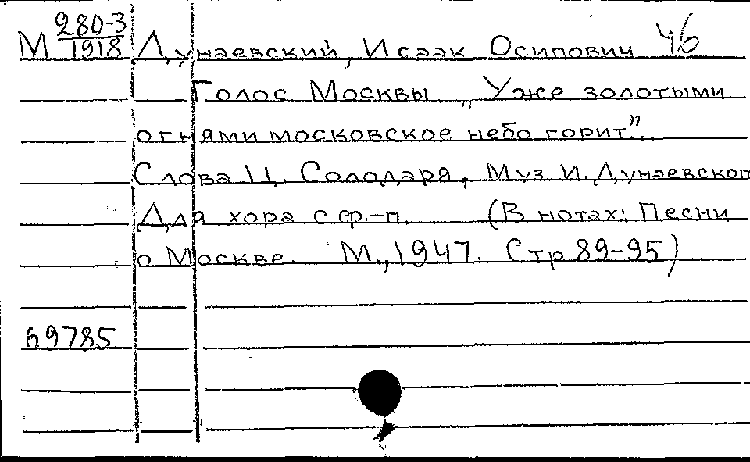 М 280-3/1918 Дунаевский, Исаак Осипович 46
Голос Москвы „Уже золотыми
огнями московское небо горит".
Слова Ц. Солодаря, Муз И. Дунаевског
Для хора с ф.-п. (В нотах: Песни
о Москве. М., 1947. Стр 89-95)
69785